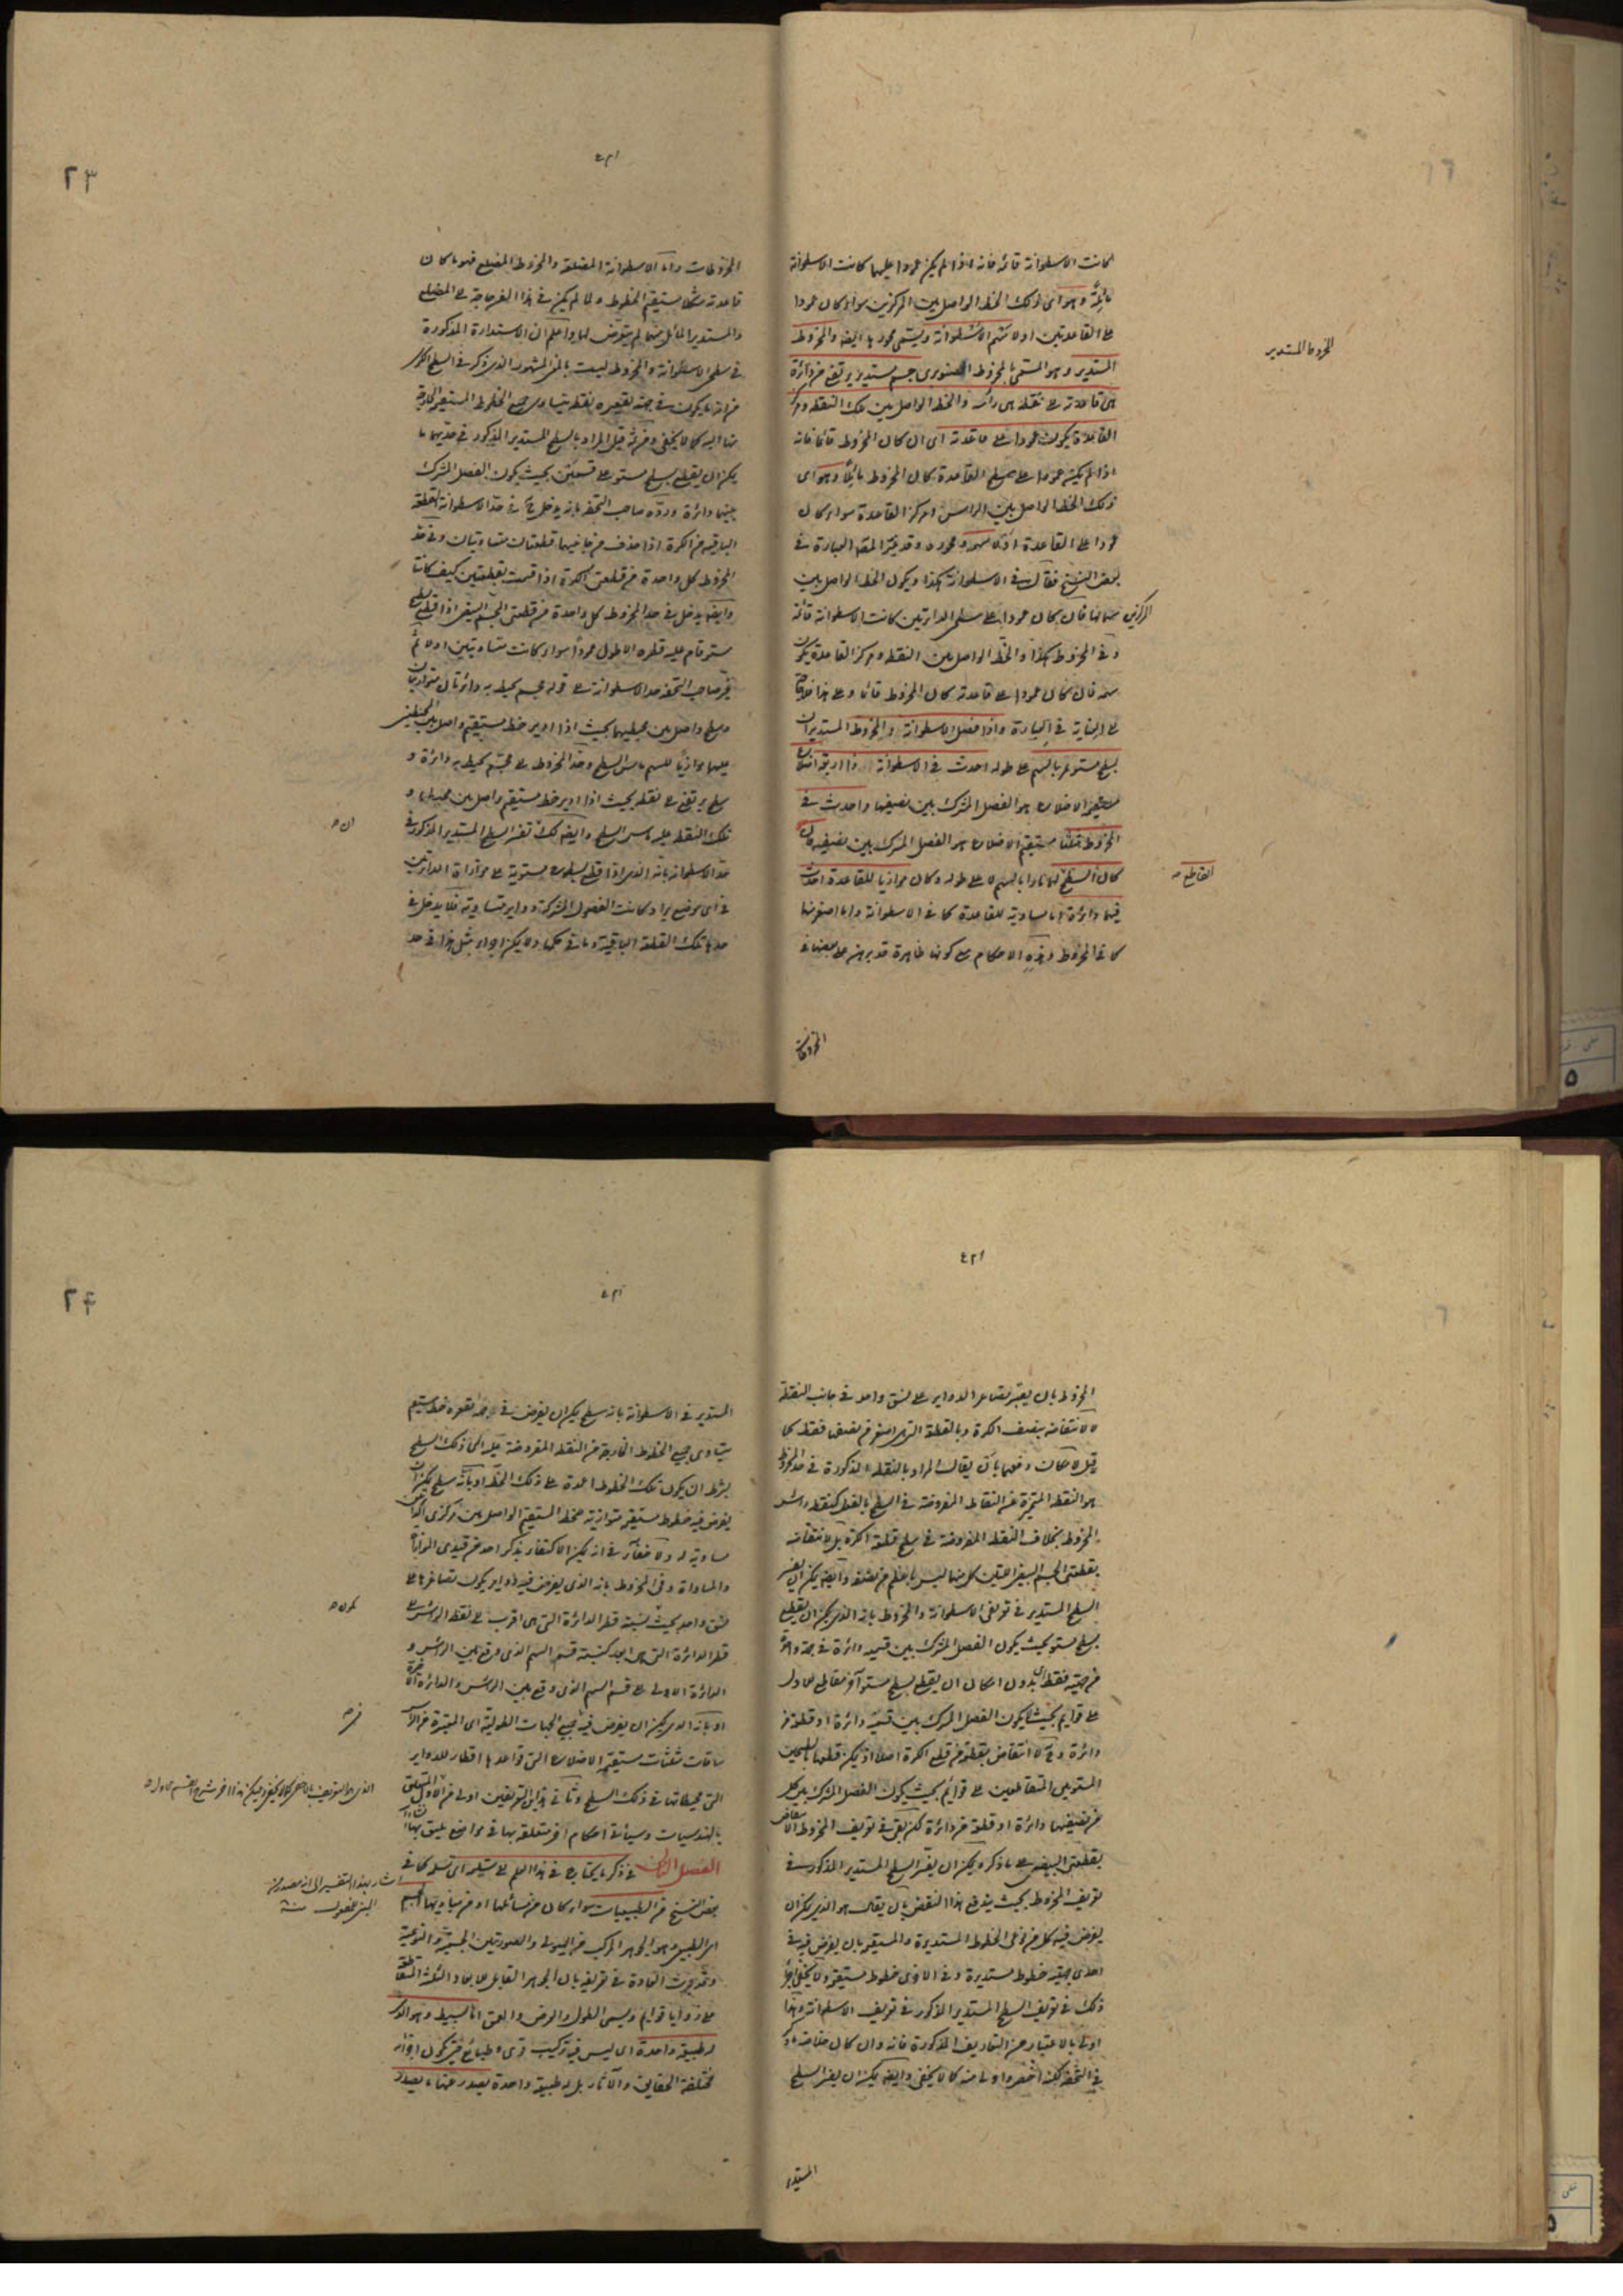 كانت الاسطوانة قائمة فانه اذا لم يكن عمودا عليهما كانت الاسطوانة
مائلة وهو اى ذلك الخط الواصل بين المركزين سواء كان عمودا
على القاعدتين او لا سهم الاسطوانة ويسمى محورها ايضا والمخروط
المخروط المستدير
المستدير وهو المسمى بالمخروط الصنوبرى جسم مستدير يرتفع من دائرة
هى قاعدته على نقطة هى رأسه والخط الواصل بين تلك النقطة ومركز
القاعدة يكون عمودا على قاعدته اى ان كان المخروط قائما فانه
اذا لم يكن عمودا على سطح القاعدة كان المخروط مائلا وهو اى
ذلك الخط الواصل بين الراس ومركز القاعدة سواء كان
عمودا على القاعدة او لا سهمه ومحوره وقد غير المصنف العبارة فى
بعض النسخ فقال فى الاسطوانة هكذا ويكون الخط الواصل بين
المركزين سهمها فان كان عمودا على سطحى الدائرتين كانت الاسطوانة قائمة
وفى المخروط هكذا والخط الواصل بين النقطة ومركز القاعدة يكون
سهمه فان كان عمودا على قاعدته كان المخروط قائما وعلى هذا
فى العبارة واذا فصل الاسطوانة والمخروط المستديران
بسطح مستو مار بالسهم على طوله احدث فى الاسطوانة ذا اربعة اضلاع
مستقيم الاضلاع هو الفصل المشترك بين نصفيها واحدث فى
المخروط مثلثا مستقيم الاضلاع هو الفصل المشترك بين نصفيه فان
القاطع
كان السطح لهما مارا بالسهم لا على طوله وكان موازيا للقاعدة احدث
فيهما دائرة اما مساوية للقاعدة كما فى الاسطوانة واما اصغر منها
كما فى المخروط وهذه الاحكام مع كونها ظاهرة قد برهن على بعضها فى
المخروطات
٢٣
المخروطات واما الاسطوانة المضلعة والمخروط المضلع فهو ما كان
قاعدته شكلا مستقيم الخطوط ولما لم يكن فى هذا الفن حاجة الى المضلع
والمستدير المائل منهما لم يتعرض لها واعلم ان الاستدارة المذكورة
فى سطحى الاسطوانة والمخروط ليست بالمعنى المشهور الذى ذكر فى السطح الكرى
من انه ما يكون فى جهة تقعيره نقطة يتساوى جميع الخطوط المستقيمة الخارجة
منها اليه كما لا يخفى ومن ثمه قيل المراد بالسطح المستدير المذكور فى حديهما ما
يمكن ان يقطع بسطح مستو على قسمين بحيث يكون الفصل المشترك
بينهما دائرة ورده صاحب التحفة بانه يدخل ح فى حد الاسطوانة القطعة
الباقية من الكرة اذا حذف من جانبيها قطعتان متساويتان وفى حد
المخروط كل واحدة من قطعتى الكرة اذا قسمت بقطعتين كيف كانتا
وايضا يدخل فى حد المخروط كل واحدة من قطعتى الجسم البيضى اذا قطع بسطح
مستو قام عليه قطره الاطول عمودا سواء كانت متساويتين او لا ثم
فسر صاحب التحفة حد الاسطوانة على قوله جسم يحيط به دائرتان متوازيتان
وسطح واصل بين محيطيهما بحيث اذا ادير خط مستقيم واصل بين المحيطين
عليهما موازيا للسهم ماس السطح وحد المخروط على جسم يحيط به دائرة و
سطح يرتفع على نقطة بحيث اذا ادير خط مستقيم واصل بين محيطها و
تلك النقطة عليه ماس السطح وايضا لك ان تفسر السطح المستدير المذكور فى
حد الاسطوانة بانه الذى اذا قطع بسطوح مستوية على موازاة الدائرتين
فى اى موضع يراد كانت الفصول المشتركة دواير متساوية فلا يدخل فى
حدها تلك القطعة الباقية وما فى حكمها ولا يمكن اجراء مثل هذا فى حد
المخروط بان يعتبر تصاغر الدواير على نسق واحد فى جانب النقطة
لانتقاضه بنصف الكرة وبالقطعة التى اصغر من نصفها فقط كما
قيل لامكان دفعها بان يقال المراد بالنقطة المذكورة فى حد المخروط
هو النقطة المتميزة عن النقاط المفروضة فى السطح بالفعل كنقطة راس
المخروط بخلاف النقطة المفروضة فى سطح قطعة الكرة بل لانتقاضه
بقطعتى الجسم البيضى اللتين كل منهما ليس باعظم من نصفه وايضا يمكن ان يفسر
السطح المستدير فى تعريفى الاسطوانة والمخروط بانه الذى يمكن ان يقطع
بسطح مستو بحيث يكون الفصل المشترك بين قسميه دائرة فى جهة واحدة
من جهتيه فقط اى بدون امكان ان يقطع بسطح مستو آخر مقاطع للاول
على قوايم بحيث يكون الفصل المشترك بين قسميه دائرة او قطعة من
دائرة وح لا انتقاض بقطعة من قطع الكرة اصلا اذ يمكن قطعها بالسطحين
المستويين المتقاطعين على قوايم بحيث يكون الفصل المشترك بين كل
من نصفيهما دائرة او قطعة من دائرة لكن بقى فى تعريف المخروط الانتقاض
بقطعتى البيضى على ما ذكره ويمكن ان يفسر السطح المستدير المذكور فى
تعريف المخروط بحيث يندفع هذا النقض بان يقال هو الذى يمكن ان
يفرض فيه كل من نوعى الخطوط المستديرة والمستقيمة بان يفرض فيه فى
احدى جهتيه خطوط مستديرة وفى الاخرى خطوط مستقيمة ولا يخفى اجراء
ذلك فى تعريف السطح المستدير المذكور فى تعريف الاسطوانة وهذا
اولى بالاعتبار من التعاريف المذكورة فانه وان كان خلاصة ما ذكر
فى التحفة لكنه اخصر واولى منه كما لا يخفى وايضا يمكن ان يفسر السطح
المستدير
٢٤
المستدير فى الاسطوانة بانه سطح يمكن ان يفرض فى جهة تقعيره خط مستقيم
يتساوى جميع الخطوط الخارجة من النقطة المفروضة عليه الى ذلك السطح
بشرط ان يكون تلك الخطوط اعمدة على ذلك الخط او بانه سطح يمكن ان
يفرض فيه خطوط مستقيمة متوازية للخط المستقيم الواصل بين مركزى الدائرتين
مساوية له ولا خفاء فى انه يمكن الاكتفاء بذكر احد من قيدى الموازاة
والمساواة وفى المخروط بانه الذى يفرض فيه دواير يكون تصاغرها على
نسق واحد بحيث نسبة قطر الدائرة التى هى اقرب الى نقطة الراس الى
قطر الدائرة التى هى ابعد كنسبة قسم السهم الذى وقع بين الراس و
الدائرة الاولى الى قسم السهم الذى وقع بين الراس والدائرة الاخيرة
او بانه الذى يمكن ان يفرض فيه جميع الجهات الطولية اى المتميزة
ساقات مثلثات مستقيمة الاضلاع التى قواعدها اقطار للدواير
التى محيطاتها فى ذلك السطح وثانى هذين التعريفين اولى من الاول المتعلق
بالهندسيات وسيأتى احكام اخر متعلقة بها فى مواضع يليق بها
الفصل الثانى فى ذكر ما يحتاج فى هذا العلم الى تسلمه اى تسلمه كما فى
بعض النسخ من الطبيعيات سواء كان من مسائلها او من مباديها الجسم
الطبيعى وهو الجوهر المركب من الهيولى والصورتين الجسمية والنوعية
وقد جرت العادة فى تعريفه بان الجوهر القابل للابعاد الثلاثة المتقاطعة
على زوايا قوايم ويسمى الطول والعرض والعمق اما بسيط وهو الذى
له طبيعة واحدة اى ليس فيه تركيب قوى وطبايع فيكون اجزاء
مختلفة الحقايق والآثار بل له طبيعة واحدة يصدر عنها ما يصدر